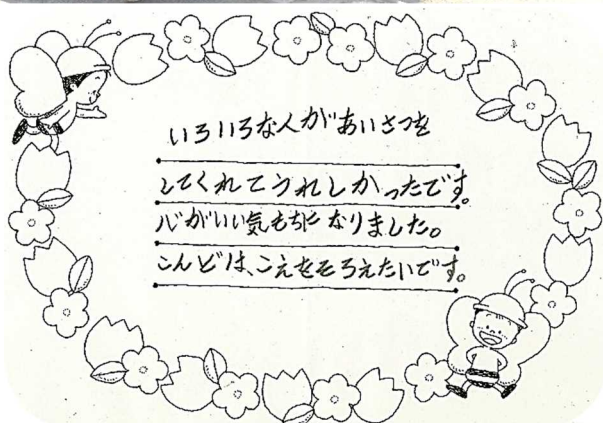 いろいろな人があいさつを
してくれてうれしかったです。
心がいい気もちになりました。
こんどは、こえをそろえたいです。